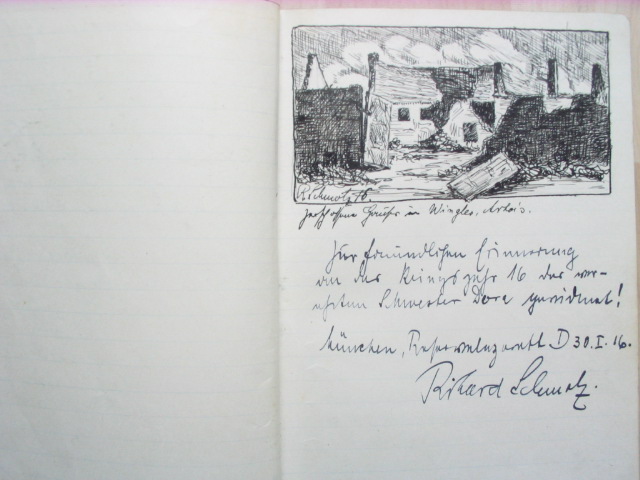 R. Schmolz 16.
Zerschossene Häuser in Wingles, Artois.
Zur freundlichen Erinnerung
an das Kriegsjahr 16 der ver-
ehrten Schwester Dora gewidmet!
München, Reservelazarett D 30.I.16.
Richard Schmolz.